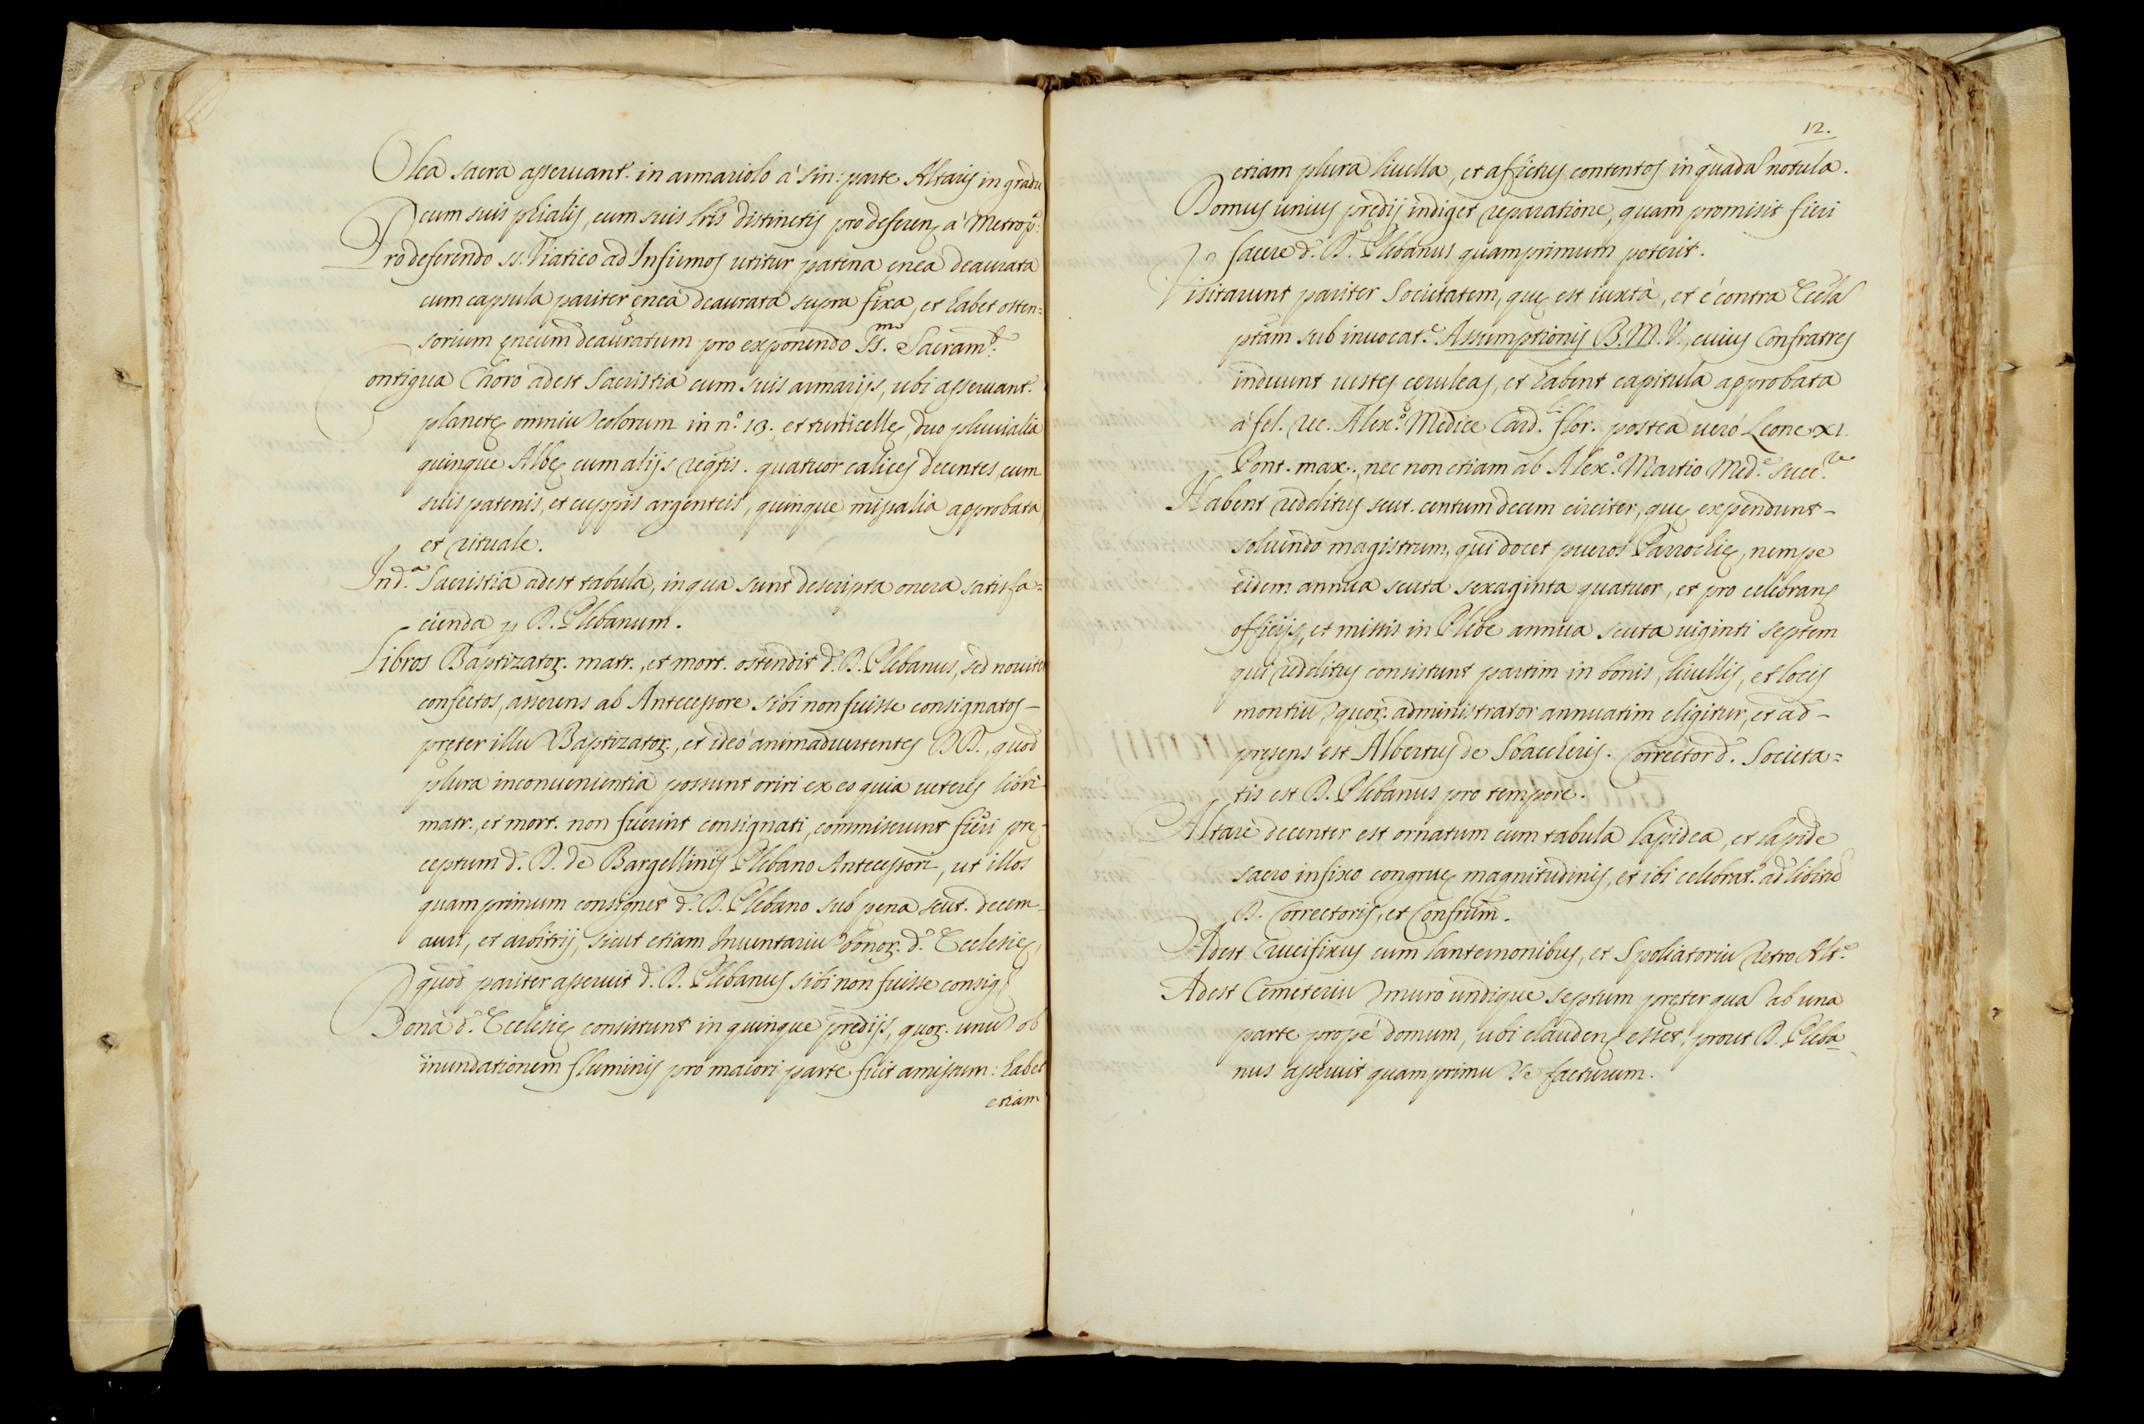 Olea sacra asseruant.r in armariolo à sin: parte Altaris in gradu
cum suis phialis, cum suis lris distinctis pro deferen. à Metrop.
Pro deferendo ss. Viatico ad Infirmos utitur patena enea deaurata
cum capsula pariter enea deaurata supra fixa, et habet osten=
sorium ęneum deauratum pro exponendo SS.mo Sacram.to
Contigua Choro adest Sacristia cum suis armarijs, ubi asseruant.r
planetę omniu colorum in n.o 13. et tunicellę, duo pluuialia
quinque Albę cum alijs reqtis. quatuor calices decentes, cum
suis patenis, et cuppis argenteis, quinque missalia approbata,
et rituale.
In d.a Sacristia adest tabula, in qua sunt descripta onera satisfa=
cienda p R. Plebanum.
Libros Baptizator. matr., et mort. ostendit d. R. Plebanus, sed nouiter
confectos, asserens ab Antecessore sibi non fuisse consignatos -
pręter illu Baptizator., et ideò animaduertentes RR., quod
plura inconuenientia possunt oriri ex eo quia ueteres libri
matr., et mort. non fuerint consignati, commiserunt fieri prę-
ceptum d. R. de Bargellinis Plebano Antecessori, ut illos
quam primum consignet d. R. Plebano sub pena scut. decem
auri, et arbitrij, sicut etiam Inuentariu bonor. d.ę Ecclesię,
quod pariter asseruit d. R. Plebanus sibi non fuisse consig.
Bona d.ę Ecclesię consistunt in quinque prędijs, quor. unu ob
inundationem fluminis pro maiori parte fuit amissum: habet
etiam
12.
etiam plura liuella, et affictus contentos in quada notula.
Domus unius prędij indiget reparatione, quam promisit fieri
facere d. R. Plebanus quamprimum poterit.
Visitarunt pariter Societatem, quę est iuxtà, et è contra Eccla
ptam sub inuocat.e Assumptionis B.M.V., cuius Confratres
induunt uestes ceruleas, et habent capitula approbata
à fel. rec. Alex.o Medice Card.li flor. postea uerò Leone XI.
Pont. max., nec non etiam ab Alex.o Martio Med.e succ.re
Habent redditus scut. centum decem circiter, quę expendunt -
soluendo magistrum, qui docet pueros Parrochię, nempe
eidem annua scuta sexaginta quatuor, et pro celebran.
officijs, et missis in Plebe annua scuta uiginti septem
qui redditus consistunt partim in bonis, liuellis, et locis
montiu quor. administrator annuatim eligitur, et ad -
pręsens est Albertus de Sbaccheris. Corrector d. Societa=
tis est R. Plebanus pro tempore.
Altare decenter est ornatum cum tabula lapidea, et lapide
sacro infixo congruę magnitudinis, et ibi celebrat.r ad libitu
R. Correctoris, et Confrum.
Adest Crucifixus cum lanternonibus, et Spoliatoriu retro Alt.e
Adest Cemeteriu muro undique septum pręter qua ab una
parte propè domum, ubi clauden. esset, prout R. Pleba=
nus asseruit quamprimu se facturum.